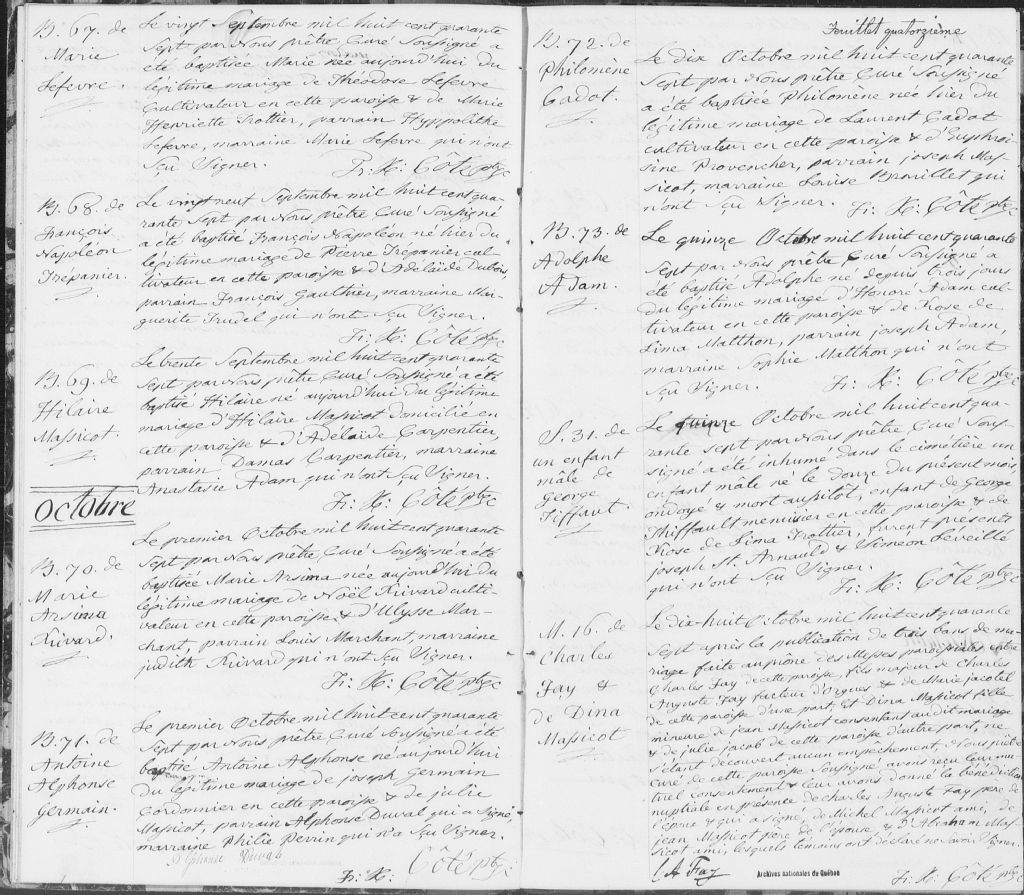 B. 67. de
Marie
Lefevre.
Le vingt Septembre mil huit cent quarante
Sept par Nous prêtre Curé Soussigné a
été baptisée Marie née aujourd'hui du
légitime mariage de Théodose Lefevre
Cultivateur en cette paroisse & de Marie
Henriette Trottier, parrain Hyppolithe
Lefevre, marraine Marie Lefevre qui n'ont
Sçu Signer.
Fr: X: Côté ptre
B. 68. de
François
Napoléon
Trépanier.
Le vingt neuf Septembre mil huit cent qua-
rante Sept par Nous prêtre Curé Soussigné
a été baptisé François Napoléon né hier du
légitime mariage de Pierre Trépanier cul-
tivateur en cette paroisse & d'Adelaïde Dubois,
parrain François Gauthier, marraine Mar-
guerite Trudel qui n'ont Sçu Signer.
Fr: X: Côté ptre
B. 69. de
Hilaire
Massicot.
Le trente Septembre mil huit cent quarante
Sept par Nous prêtre Curé Soussigné a été
baptisé Hilaire né aujourd'hui du légitime
mariage d'Hilaire Massicot domicilié en
cette paroisse & d'Adélaïde Carpentier,
parrain Damas Carpentier, marraine
Anastasie Adam qui n'ont Sçu Signer.
Fr: X: Côté ptre
Octobre
B. 70. de
Marie
Arsima
Rivard.
Le premier Octobre mil huit cent quarante
Sept par Nous prêtre Curé Soussigné a été
baptisée Marie Arsima née aujourd'hui du
légitime mariage de Noël Rivard culti-
vateur en cette paroisse & d'Ulysse Mar-
chant, parrain Louis Marchant, marraine
judith Rivard qui n'ont Sçu Signer.
Fr: X: Côté ptre
B. 71. de
Antoine
Alphonse
Germain.
Le premier Octobre mil huit cent quarante
Sept par Nous prêtre Curé Soussigné a été
baptisé Antoine Alphonse né aujourd'hui
du légitime mariage de joseph Germain
Cordonnier en cette paroisse & de julie
Massicot, parrain Alphonse Duval qui a Signé,
marraine Philie Perrin qui n'a Sçu Signer.
Alphonse Duval
Fr: X: Côté ptre
Feuillet quatorzième
B. 72. de
Philomène
Cadot.
Le dix Octobre mil huit cent quarante
Sept par Nous prêtre Curé Soussigné
a été baptisée Philomène née hier du
légitime mariage de Laurent Cadot
cultivateur en cette paroisse & d'Euphro-
sine Provencher, parrain joseph Mas-
sicot, marraine Louise Brouillet qui
n'ont Sçu Signer.
Fr: X: Côté ptre
B. 73. de
Adolphe
Adam.
Le quinze Octobre mil huit cent quarante
Sept par Nous prêtre Curé Soussigné a
été baptisé Adolphe né depuis trois jours
du légitime mariage d'Honoré Adam cul-
tivateur en cette paroisse & de Rose de
Lima Matthon, parrain joseph Adam,
marraine Sophie Matthon qui n'ont
Sçu Signer.
Fr: X: Côté ptre
S. 31. de
un enfant
mâle de
George
Tiffaut.
Le quinze Octobre mil huit cent qua-
rante sept par Nous prêtre Curé Sous-
signé a été inhumé dans le cimetière un
enfant mâle né le douze du présent mois,
ondoyé & mort aussitôt, enfant de George
Thiffault menuisier en cette paroisse & de
Rose de Lima Trottier, furent présents
joseph St. Arnauld & Simeon Léveillé
qui n'ont Sçu Signer.
Fr: X: Côté ptre
M. 16. de
Charles
Fay &
de Dina
Massicot
Le dix-huit Octobre mil huit cent quarante
Sept après la publication de trois bans de ma-
riage faite au prône des Messes paroissiales entre
Charles Fay de cette paroisse, fils majeur de Charles
Auguste Fay facteur d'orgues & de Marie jacotel
de cette paroisse d'une part; Et Dina Massicot fille
mineure de jean Massicot consentant au dit mariage
& de julie jacob de cette paroisse d'autre part, ne
s'étant découvert aucun empêchement, Nous prêtre
Curé de cette paroisse Soussigné, avons reçu leur mu-
tuel consentement & leur avons donné la bénédiction
nuptiale en présence de charles Auguste Fay père de
l'époux & qui a signé, de Michel Massicot ami, de
jean Massicot père de l'épouse, & d'Abraham Mas-
sicot ami, lesquels témoins ont déclaré ne savoir Signer.
C A Fay
Fr: X: Côté ptre
Archives nationales du Québec